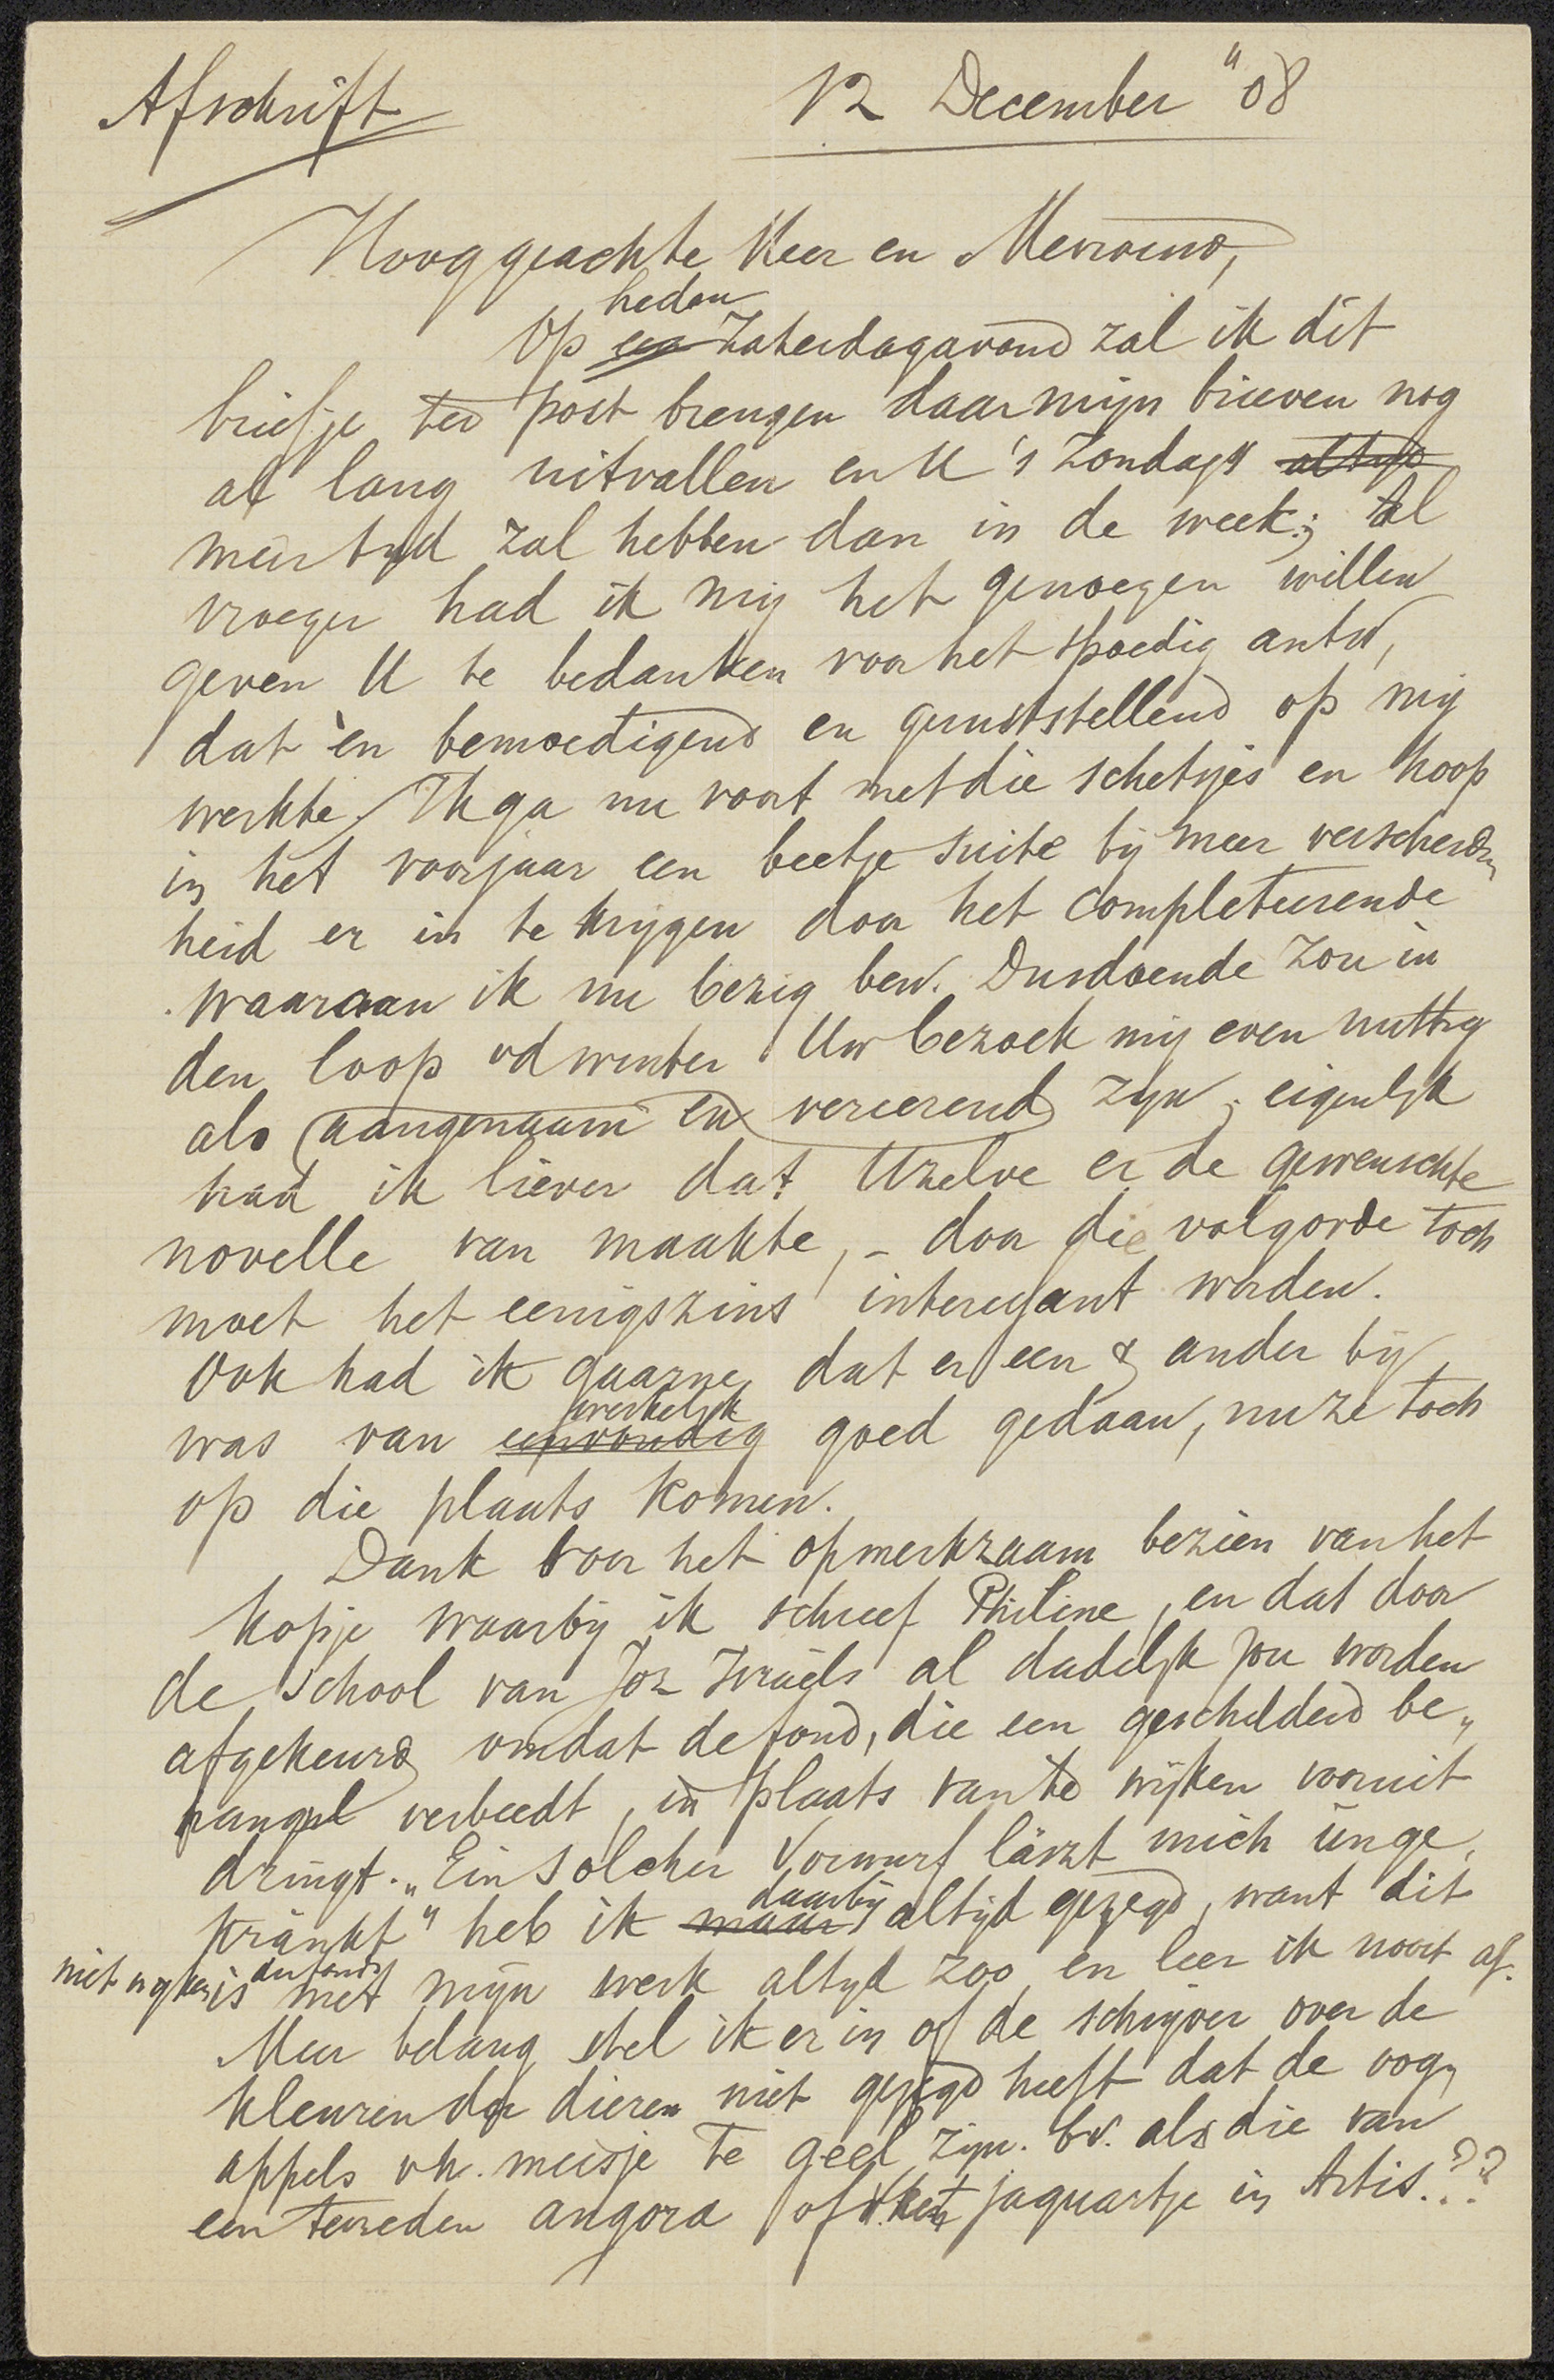 Afschrift
12 December "08
Hooggeachte Heer en Mevrouw,
heden
Op een Zaterdagavond zal ik dit
briefje ter post brengen daar mijn brieven nog
al lang uitvallen en U 's Zondags altijd
meer tyd zal hebben dan in de week; al
vroeger had ik mij het genoegen willen
geven U te bedanken voor het spoedig antw,
dat èn bemoedigend en geruststellend op mij
werkte. Ik ga nu voort met die schetsjes en hoop
in het voorjaar een beetje suite bij meer verscheiden„
heid er in te krijgen door het completeerende
waaraan ik nu bezig ben. Dusdoende zou in
den loop vd winter Uw bezoek mij even nuttig
als aangenaam en vereerend zyn; eigenlyk
had ik liever dat Uzelve er de gewenschte
novelle van maakte, - door die volgorde toch
moet het eenigszins interessant worden.
Ook had ik gaarne dat er een & ander bij
werkelyk
was van eenvoudig goed gedaan, nu ze toch
op die plaats komen.
Dank voor het opmerkzaam bezien van het
kopje waarby ik schreef Philine, en dat door
de school van Joz Israëls al dadelyk zou worden
afgekeurd omdat de fond, die een geschilderd be„
hangsel verbeedt, in plaats van te wijken vooruit
dringt. „Ein solcher Vorwurf läszt mich unge
daarbij
kränkt" heb ik maar altijd gezegd, want dit
niet wyken der fonds
is met mijn werk altyd zoo en leer ik nooit af.
Meer belang stel ik er in of de schrijver over de
kleuren der dieren niet gezegd heeft dat de oog„
appels vh. meisje te geel zijn. bv. als die van
een tevreden angora of het jaguartje in Artis.??